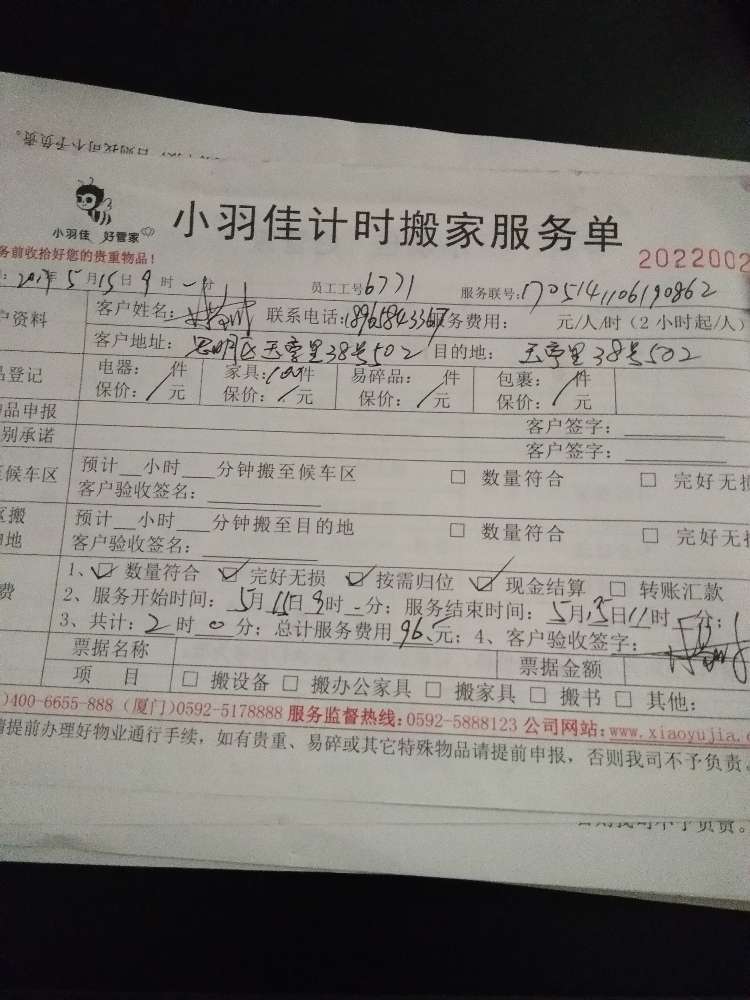 否则我司不予负责。
小羽佳 好管家
小羽佳计时搬家服务单
务前收拾好您的贵重物品！
2022002
2017年5月15日9时-分 员工工号6771 服务联号:1705141106190862
户资料 客户姓名: 联系电话:18965843367 服务费用: 元/人/时（2小时起/人）
客户地址: 思明区玉亭里38号502 目的地: 玉亭里38号502
品登记 电器: 件 家具: 件 易碎品: 件 包裹: 件
保价: 元 保价: 元 保价: 元 保价: 元
物品申报 客户签字:
别承诺 客户签字:
至候车区 预计 小时 分钟搬至候车区 □ 数量符合 □ 完好无损
客户验收签名:
区搬 预计 小时 分钟搬至目的地 □ 数量符合 □ 完好无损
地 客户验收签名:
费 1、☑ 数量符合 ☑ 完好无损 ☑ 按需归位 ☑ 现金结算 □ 转账汇款
2、服务开始时间: 5月15日9时-分; 服务结束时间: 5月15日11时 分;
3、共计: 2时0分; 总计服务费用96元; 4、客户验收签字:
票据名称 票据金额
项 目 □ 搬设备 □ 搬办公家具 □ 搬家具 □ 搬书 □ 其他:
)400-6655-888 (厦门)0592-5178888 服务监督热线:0592-5888123 公司网站:www.xiaoyujia.c
请提前办理好物业通行手续，如有贵重、易碎或其它特殊物品请提前申报，否则我司不予负责。
否则我司不予负责。